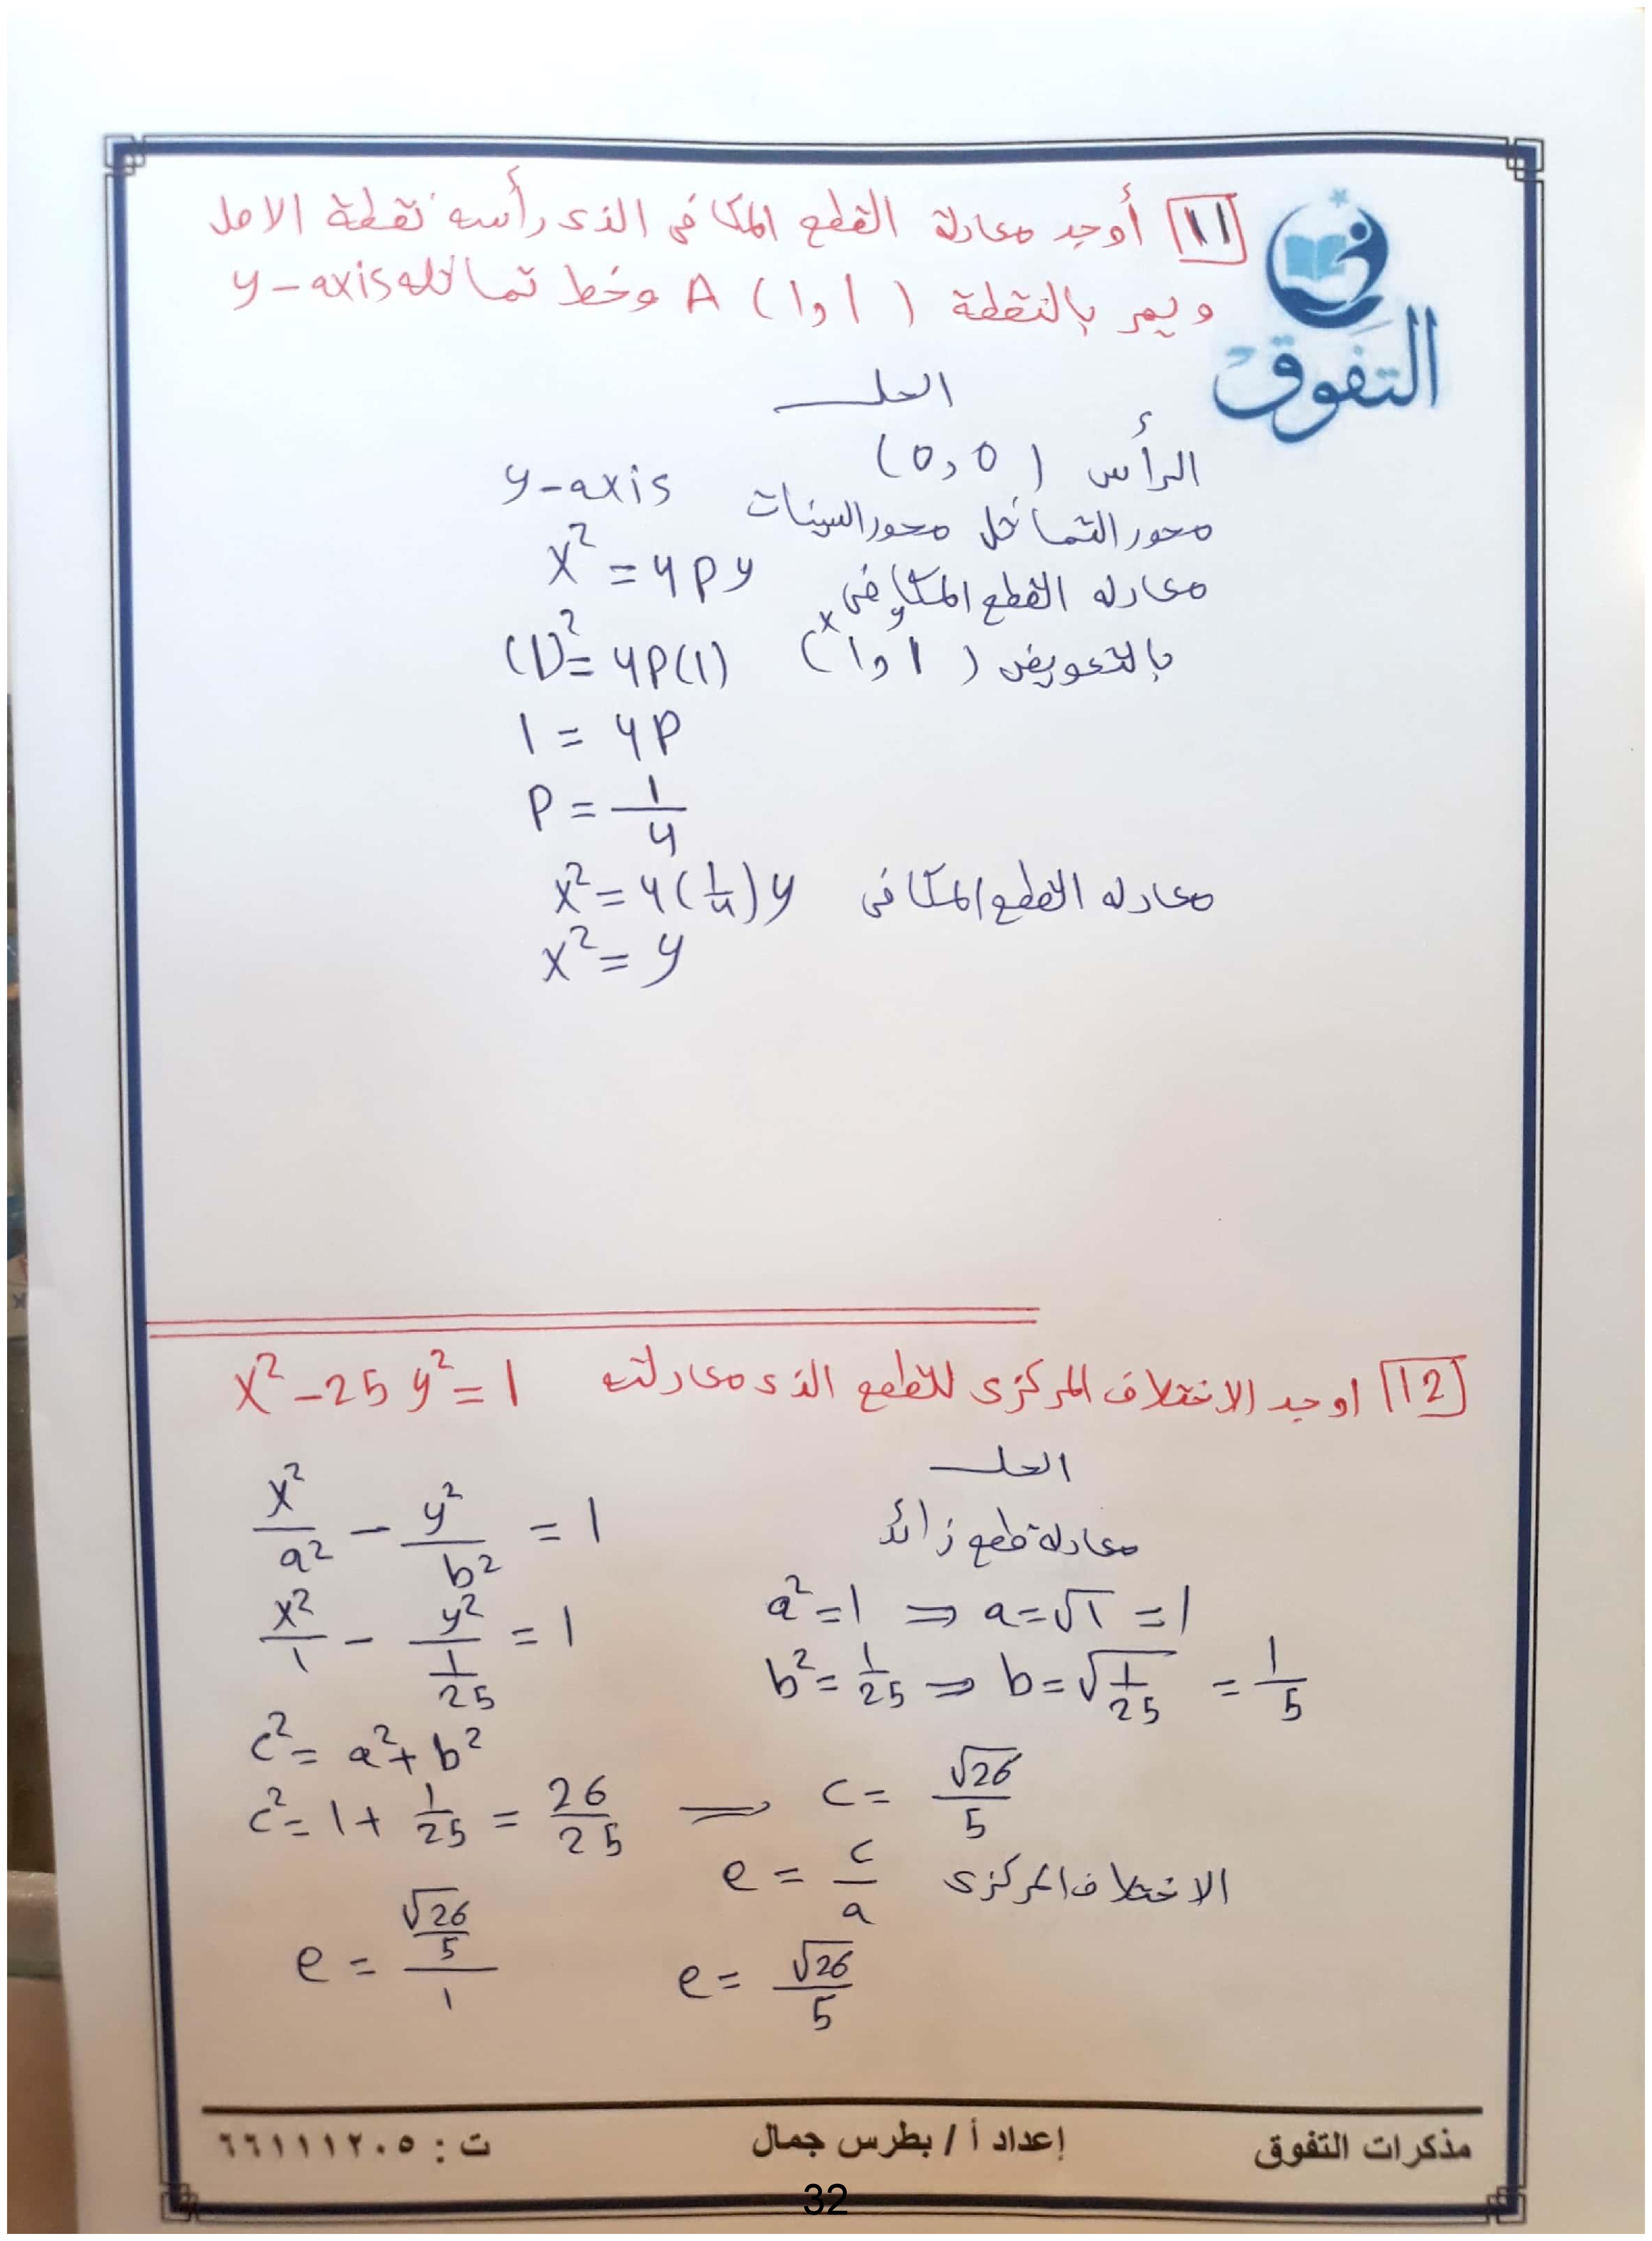 11 أوجد معادلة القطع المكافى الذى رأسه نقطة الاصل
ويمر بالنقطة A (1و1) وخط تماثله y-axis
التفوق
الحل
الرأس (0,0)
محور التماثل محور السينات y-axis
معادله القطع المكافى x² = 4py
بالتعويض (1و1) (1)² = 4p(1)
x y
1 = 4p
p = 1/4
معادله القطع المكافى x² = 4(1/4)y
x² = y
12 اوجد الاختلاف المركزى للقطع الذى معادلته x² - 25y² = 1
الحل
معادلة قطع زائد x²/a² - y²/b² = 1
x²/1 - y²/(1/25) = 1
a² = 1 ⇒ a = √1 = 1
b² = 1/25 ⇒ b = √(1/25) = 1/5
c² = a² + b²
c² = 1 + 1/25 = 26/25 ⇒ c = √26/5
الاختلاف المركزى e = c/a
e = (√26/5)/1 e = √26/5
مذكرات التفوق إعداد أ / بطرس جمال ت : ٦٦١١١٢٠٥
32